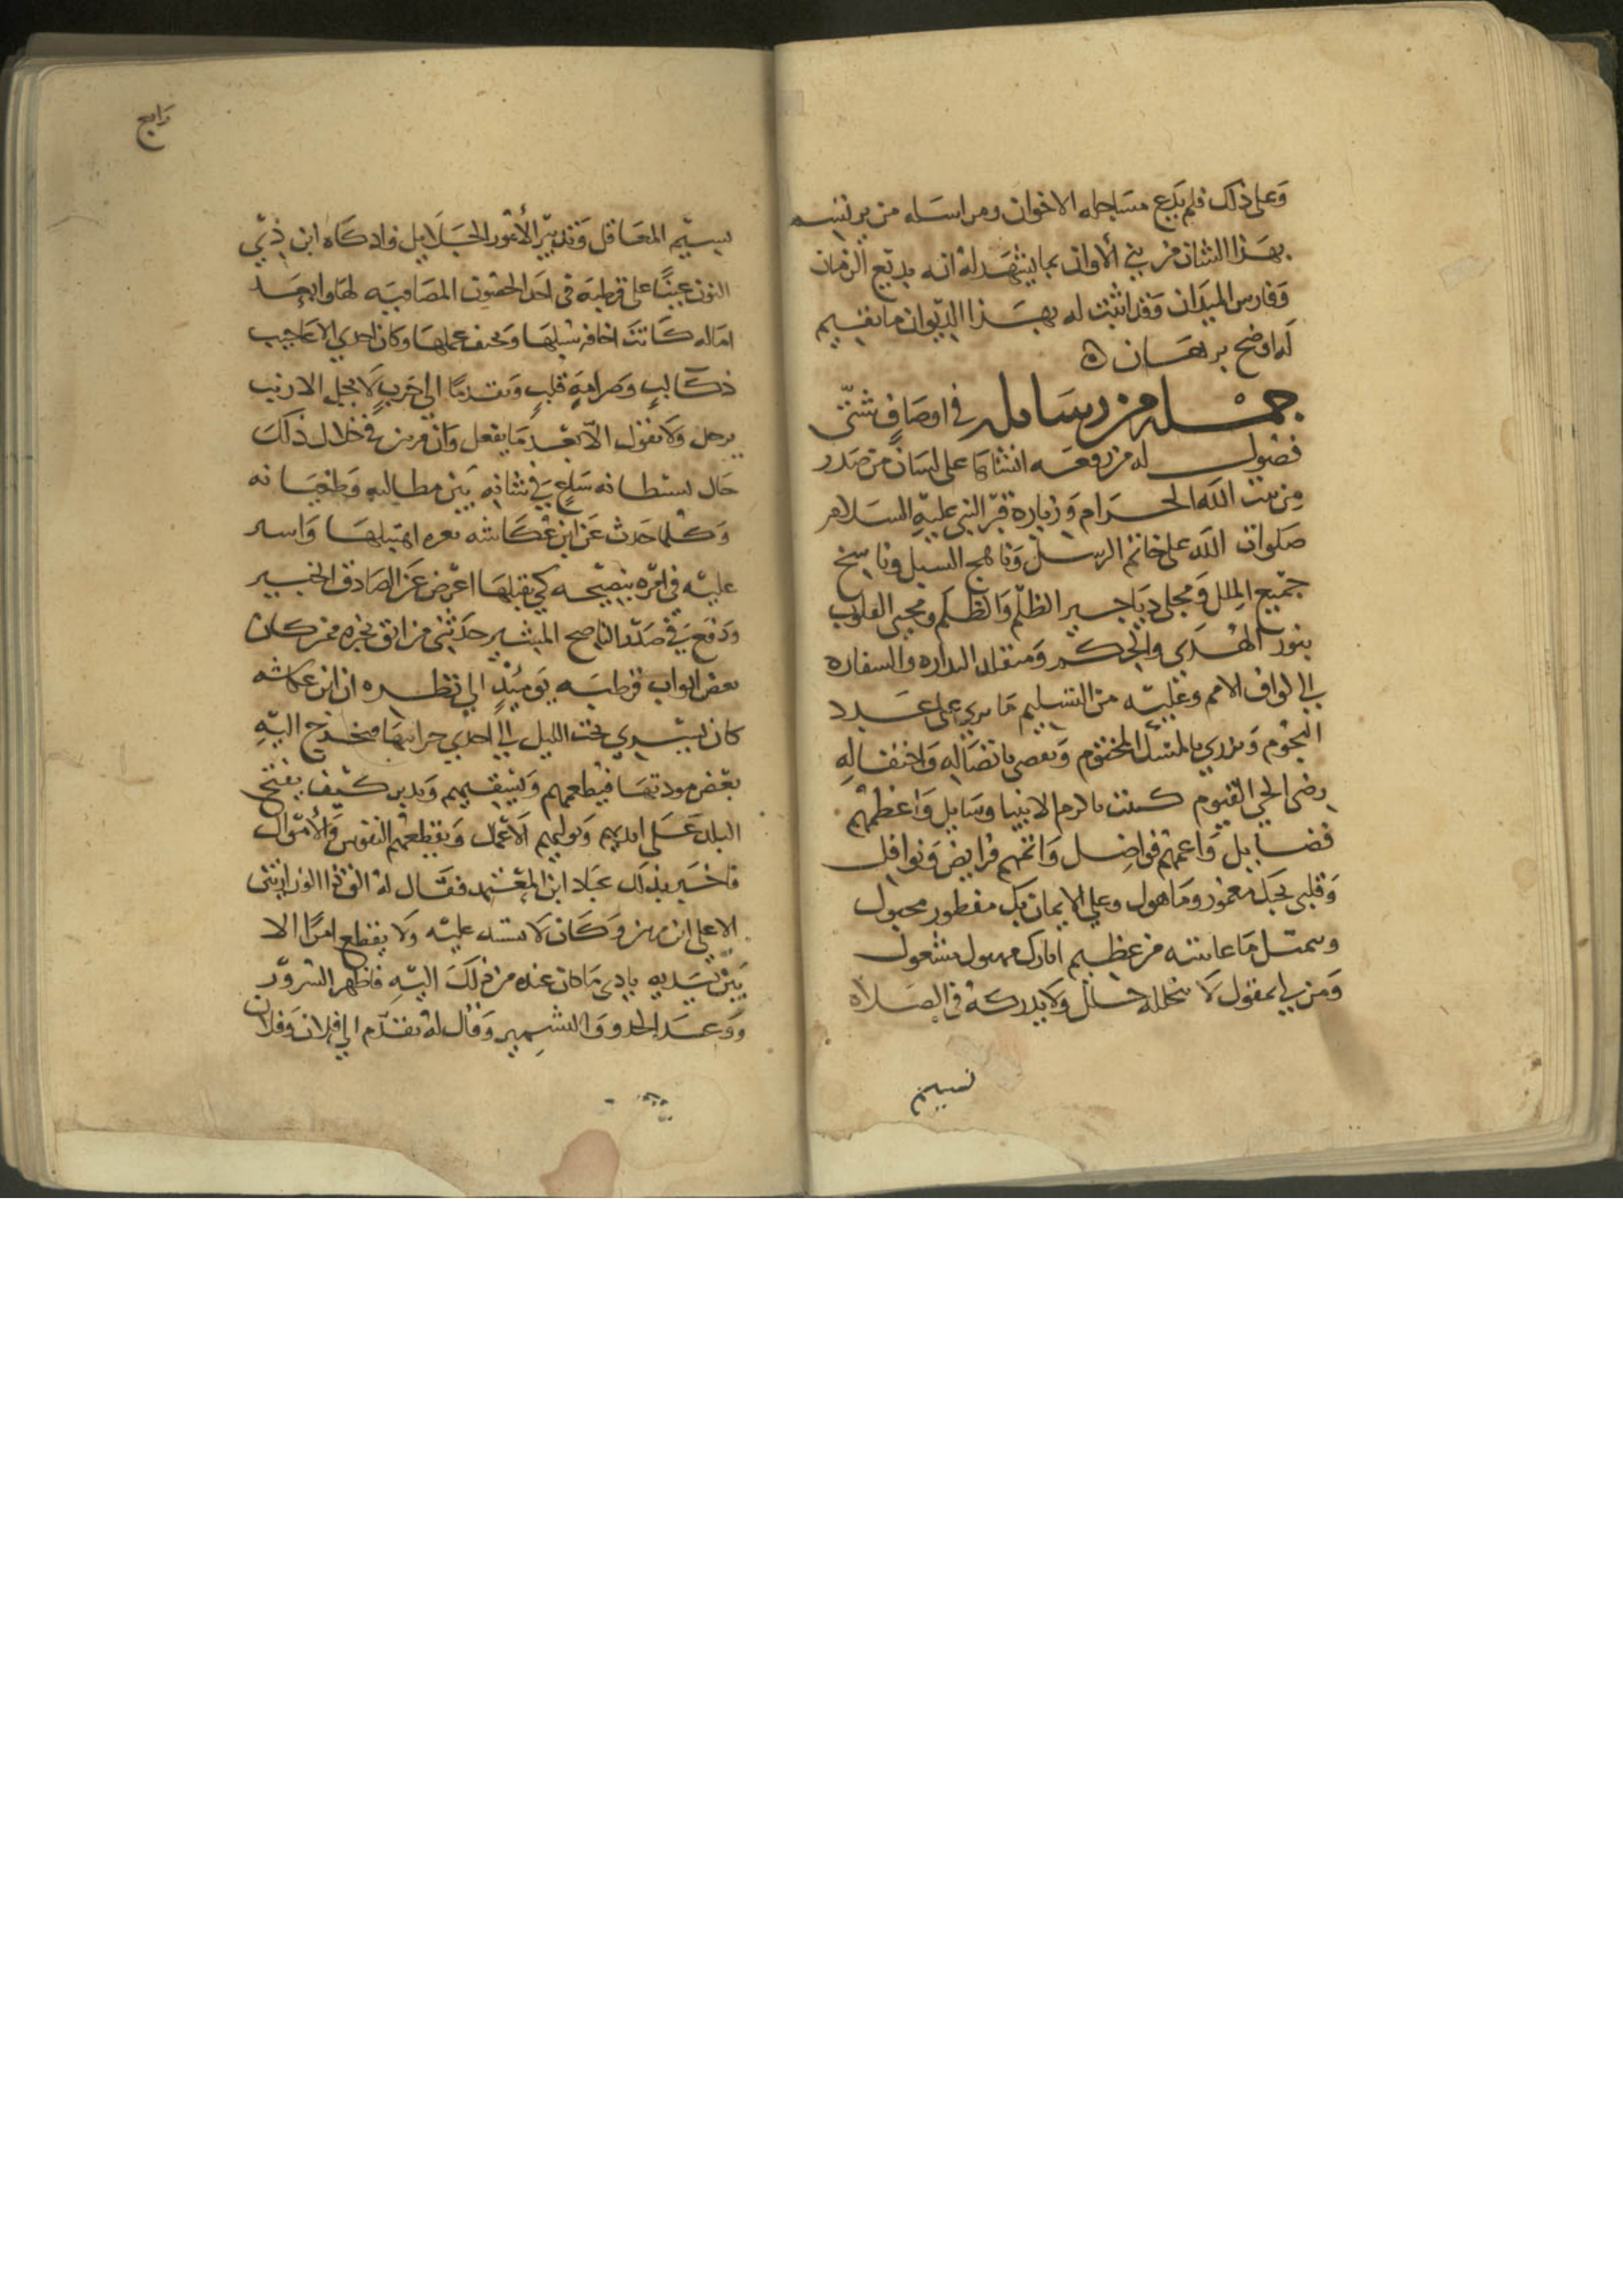 وعلى ذلك فلم يدع مساجله الاخوان ومراسله من يرتسم
بهذا الشان من بني الاوان بما يشهد له انه بديع الزمان
وفارس الميدان وقد اثبت له بهذا الديوان ما يقيم
له اوضح برهان
جملة من رسايله في اوصاف شتى
فصول له من رقعه انشاها على لسان من صدر
من بيت الله الحرام وزيارة قبر النبي عليه السلام
صلوات الله على خاتم الرسل وناهج السبل وناسخ
جميع الملل ومجلي دياجير الظلم والظلم ومحيي القلوب
بنور الهدى والحكم ومتقلد النذاره والسفاره
الى طوايف الامم وعليه من التسليم ما يربي على عدد
النجوم ويزري بالمسك المختوم ويقضي باتصاله واحتفاله
رضى الحي القيوم كتبت يا اكرم الانبيا وسايل واعظمهم
فضايل واعمهم فواضل واتمهم فرايض ونوافل
وقلبي بحبك معمور وماهول وعلى الايمان بك مفطور مجبول
ومتمثل ما عاينته من عظيم اثارك مشغول
ومن لي بمقول لا يتخلله خلل ولا يدركه في الصلاة
نسيم
رابع
المعاقل وتدبير الامور الجلايل واذكاه ابن ذي
النون عينا على قرطبه في احد الحصون المصاقبه لها وابعد
اماله كانت اخافه سبلها وتحيف عملها وكان احدى الاعاجيب
ذكا لب وصرامة قلب وتقدما الى حرب لا يجل الا ريب
يرحل ولا يقول الا بعد ما يفعل وان قرين في خلال ذلك
حال سلطانه ساع في شانه بين مطالبه وطغيانه
وكلما حدث عن ابن عكاشه بغره اهتبلها واسير
عليه في امره بنصيحه كي يقبلها اعرض عن الصادق الخبير
ودفع في صدر الناصح المشير حدثني من اثق بخبره ممن كان
بعض ابواب قرطبه يوميذ الى نظره ان ابن عكاشه
كان يسري تحت الليل الى احدي جراتها فيخرج اليه
بعض فيطعمهم ويسقيهم ويدبر كيف يفتح
البلد على ايديهم ويوليهم الاعمال ويقطعهم النفوس والاموال
فاخبر بذلك عباد ابن المعتمد فقال له الق ذا الوزارتين
الاعلى ابن مرتين وكان لا يستبد عليه ولا يقطع امرا الا
بين يديه فادى ما كان عنده من ذلك اليه فاظهر السرور
ووعد الجد والتشمير وقال له تقدم الى فلان وفلان